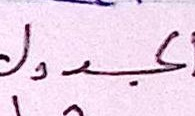 الجدول